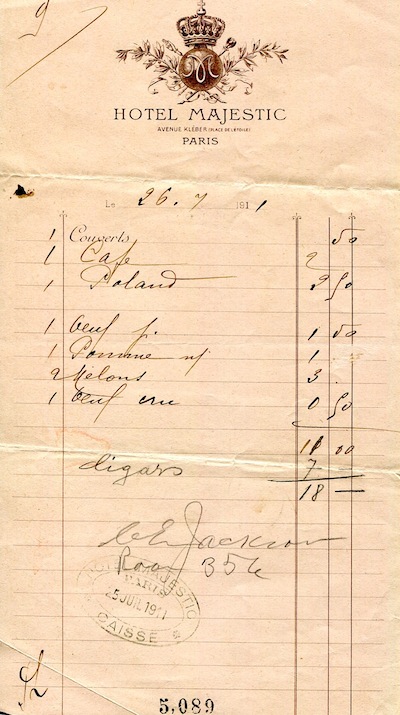 9
M
HOTEL MAJESTIC
AVENUE KLÉBER (PLACE DE L'ÉTOILE)
PARIS
Le 26. 7 1911
1 Couverts 50
1 Café 2
1 Poland 2 50
1 Oeuf f. 1 50
1 Pomme nf 1
2 Melons 3
1 Oeuf cru 0 50
11 00
Cigars 7
18 —
C E Jackson
Room 356
HOTEL MAJESTIC
PARIS
25 JUIL 1911
CAISSE
5,089